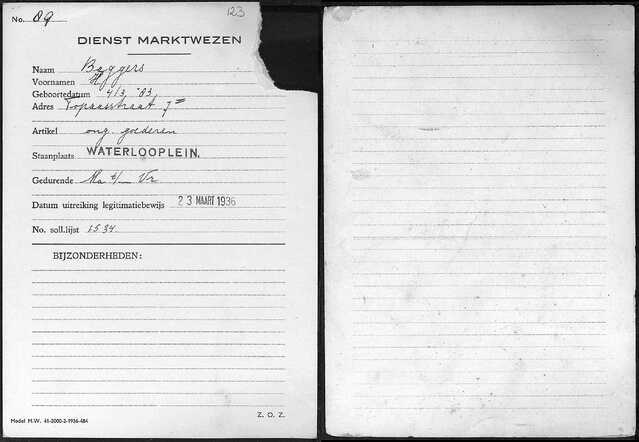 No. 89
123
DIENST MARKTWEZEN
Naam Baggers
Voornamen H
Geboortedatum 4/3, '83
Adres Topaasstraat 7=
Artikel ong. goederen
Staanplaats WATERLOOPLEIN.
Gedurende Ma t/_ Vr
Datum uitreiking legitimatiebewijs 23 MAART 1936
No. soll.lijst 1534
BIJZONDERHEDEN:
Model M.W. 41-2000-2-1936-484
Z. O. Z.